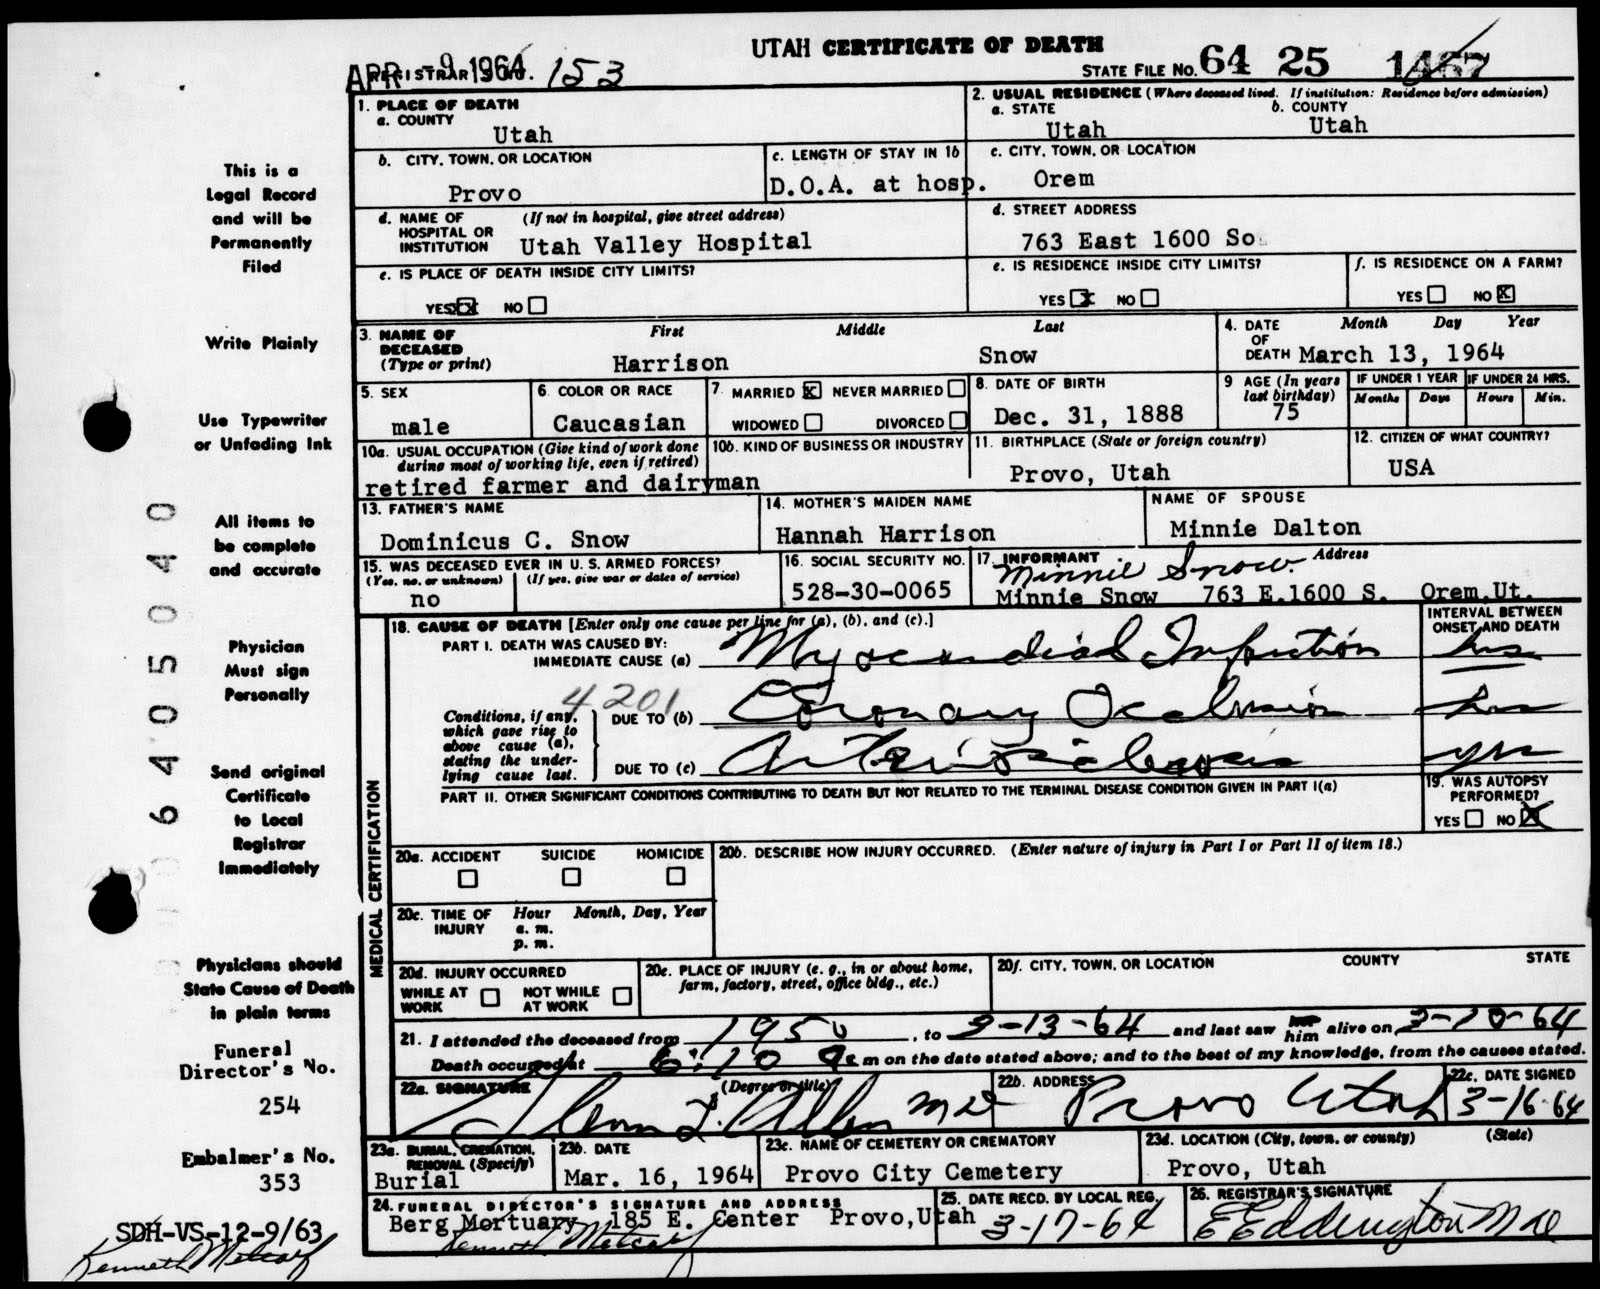 UTAH CERTIFICATE OF DEATH
APR -9 1964
REGISTRAR'S NO. 153
STATE FILE NO. 64 25 1467
1. PLACE OF DEATH
a. COUNTY
Utah
2. USUAL RESIDENCE (Where deceased lived. If institution: Residence before admission)
a. STATE b. COUNTY
Utah Utah
b. CITY, TOWN, OR LOCATION
Provo
c. LENGTH OF STAY IN 1b
D.O.A. at hosp.
c. CITY, TOWN, OR LOCATION
Orem
d. NAME OF HOSPITAL OR INSTITUTION (If not in hospital, give street address)
Utah Valley Hospital
d. STREET ADDRESS
763 East 1600 So.
e. IS PLACE OF DEATH INSIDE CITY LIMITS?
YES XX NO
e. IS RESIDENCE INSIDE CITY LIMITS?
YES X NO
f. IS RESIDENCE ON A FARM?
YES NO X
3. NAME OF DECEASED (Type or print)
First Middle Last
Harrison Snow
4. DATE OF DEATH Month Day Year
March 13, 1964
5. SEX
male
6. COLOR OR RACE
Caucasian
7. MARRIED X NEVER MARRIED
WIDOWED DIVORCED
8. DATE OF BIRTH
Dec. 31, 1888
9 AGE (In years last birthday)
75
IF UNDER 1 YEAR IF UNDER 24 HRS.
Months Days Hours Min.
10a. USUAL OCCUPATION (Give kind of work done during most of working life, even if retired)
retired farmer and dairyman
10b. KIND OF BUSINESS OR INDUSTRY
11. BIRTHPLACE (State or foreign country)
Provo, Utah
12. CITIZEN OF WHAT COUNTRY?
USA
13. FATHER'S NAME
Dominicus C. Snow
14. MOTHER'S MAIDEN NAME
Hannah Harrison
NAME OF SPOUSE
Minnie Dalton
15. WAS DECEASED EVER IN U. S. ARMED FORCES?
(Yes, no, or unknown) (If yes, give war or dates of service)
no
16. SOCIAL SECURITY NO.
528-30-0065
17. INFORMANT Address
Minnie Snow
Minnie Snow 763 E.1600 S. Orem,Ut.
MEDICAL CERTIFICATION
18. CAUSE OF DEATH [Enter only one cause per line for (a), (b), and (c).]
INTERVAL BETWEEN ONSET AND DEATH
PART I. DEATH WAS CAUSED BY:
IMMEDIATE CAUSE (a) Myocardial Infarction hrs
4201
Conditions, if any, which gave rise to above cause (a), stating the underlying cause last.
DUE TO (b) Coronary Occlusion hrs
DUE TO (c) Arteriosclerosis yrs
PART II. OTHER SIGNIFICANT CONDITIONS CONTRIBUTING TO DEATH BUT NOT RELATED TO THE TERMINAL DISEASE CONDITION GIVEN IN PART I(a)
19. WAS AUTOPSY PERFORMED?
YES NO X
20a. ACCIDENT SUICIDE HOMICIDE
20b. DESCRIBE HOW INJURY OCCURRED. (Enter nature of injury in Part I or Part II of item 18.)
20c. TIME OF INJURY Hour Month, Day, Year
a. m.
p. m.
20d. INJURY OCCURRED
WHILE AT WORK NOT WHILE AT WORK
20e. PLACE OF INJURY (e. g., in or about home, farm, factory, street, office bldg., etc.)
20f. CITY, TOWN, OR LOCATION COUNTY STATE
21. I attended the deceased from 1950, to 3-13-64 and last saw her him alive on 3-10-64
Death occurred at 6:10 a.m on the date stated above; and to the best of my knowledge, from the causes stated.
22a. SIGNATURE (Degree or title)
L. Allen MD
22b. ADDRESS
Provo Utah
22c. DATE SIGNED
3-16-64
23a. BURIAL, CREMATION, REMOVAL (Specify)
Burial
23b. DATE
Mar. 16, 1964
23c. NAME OF CEMETERY OR CREMATORY
Provo City Cemetery
23d. LOCATION (City, town, or county) (State)
Provo, Utah
24. FUNERAL DIRECTOR'S SIGNATURE AND ADDRESS
Berg Mortuary 185 E. Center Provo,Utah
Kenneth Metcalf
25. DATE RECD. BY LOCAL REG.
3-17-64
26. REGISTRAR'S SIGNATURE
E Eddington MD
This is a
Legal Record
and will be
Permanently
Filed
Write Plainly
Use Typewriter
or Unfading Ink
All items to
be complete
and accurate
Physician
Must sign
Personally
Send original
Certificate
to Local
Registrar
Immediately
Physicians should
State Cause of Death
in plain terms
Funeral
Director's No.
254
Embalmer's No.
353
SDH-VS-12-9/63
Kenneth Metcalf
64050 40